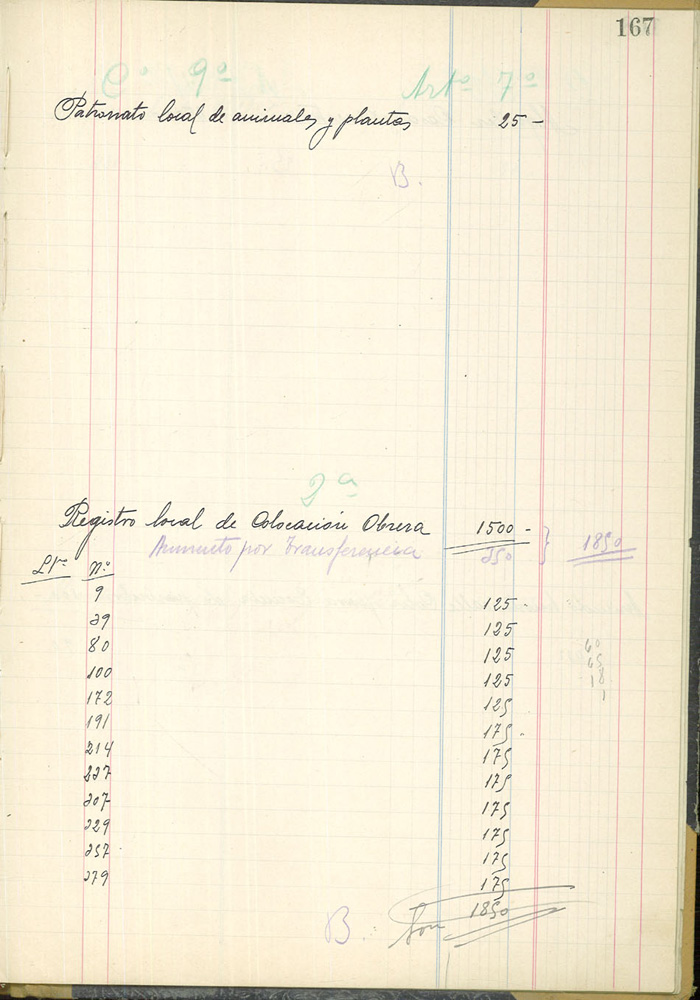 167
Cº 9º Artº 7º
Patronato local de animales y plantas 25 -
B.
2ª
Registro local de Colocación Obrera 1500 -
Aumento por transferencia 350 } 1850
Lº nº
9 125
29 125
80 125
100 125
172 125
191 175
214 175
227 175
207 175
229 175
257 175
279 175
B. Son 1850
60
65
18
1